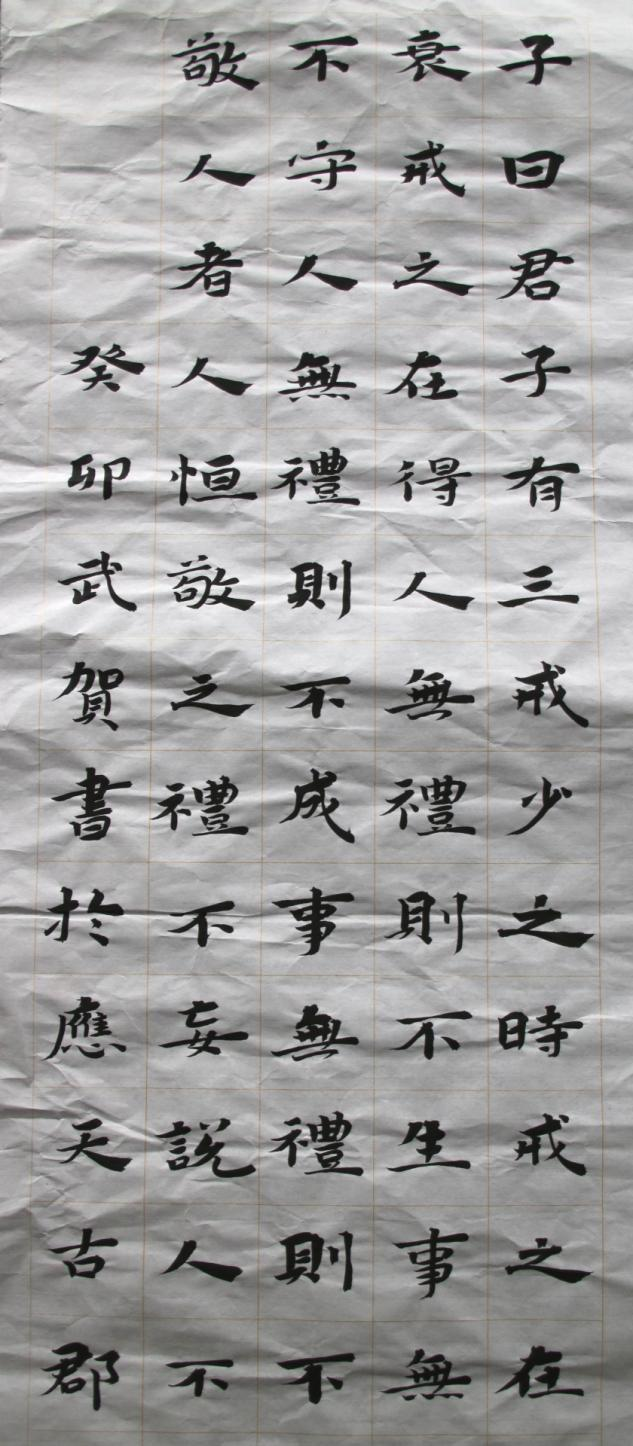 子曰君子有三戒少之時戒之在
衰戒之在得人無禮則不生事無
不守人無禮則不成事無禮則不
敬人者人恒敬之禮不妄説人不
癸卯武賀書於應天古郡